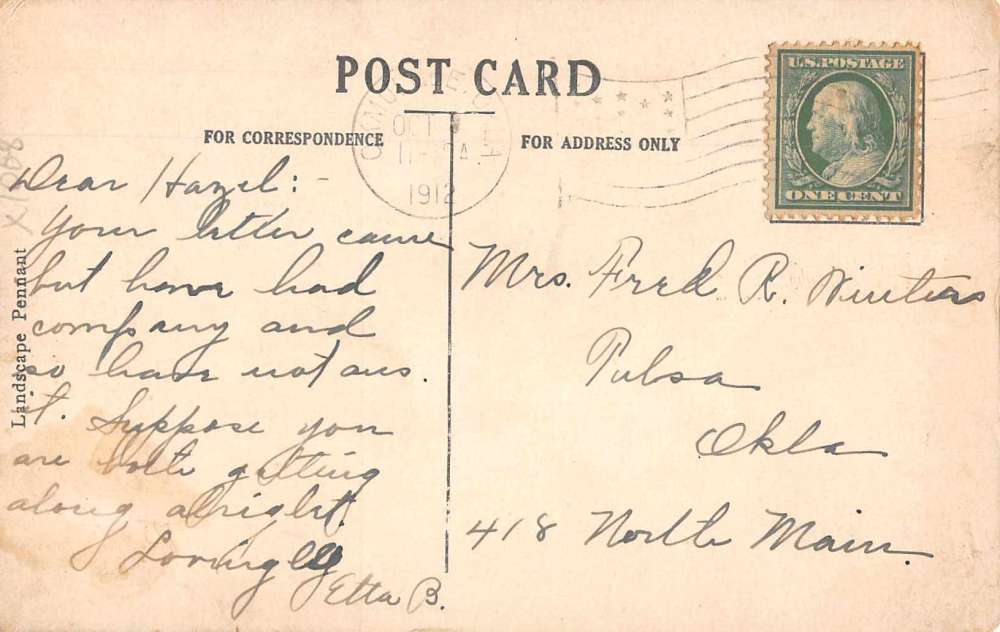 POST CARD
FOR CORRESPONDENCE
FOR ADDRESS ONLY
U.S. POSTAGE
ONE CENT
OCT
11-
A
1912
Dear Hazel:-
Your letter came
but have had
company and
so have not ans.
it. Suppose you
are both getting
along alright.
Lovingly
Etta B.
Mrs. Fred R. Winters
Tulsa
Okla
418 North Main.
Landscape Pennant